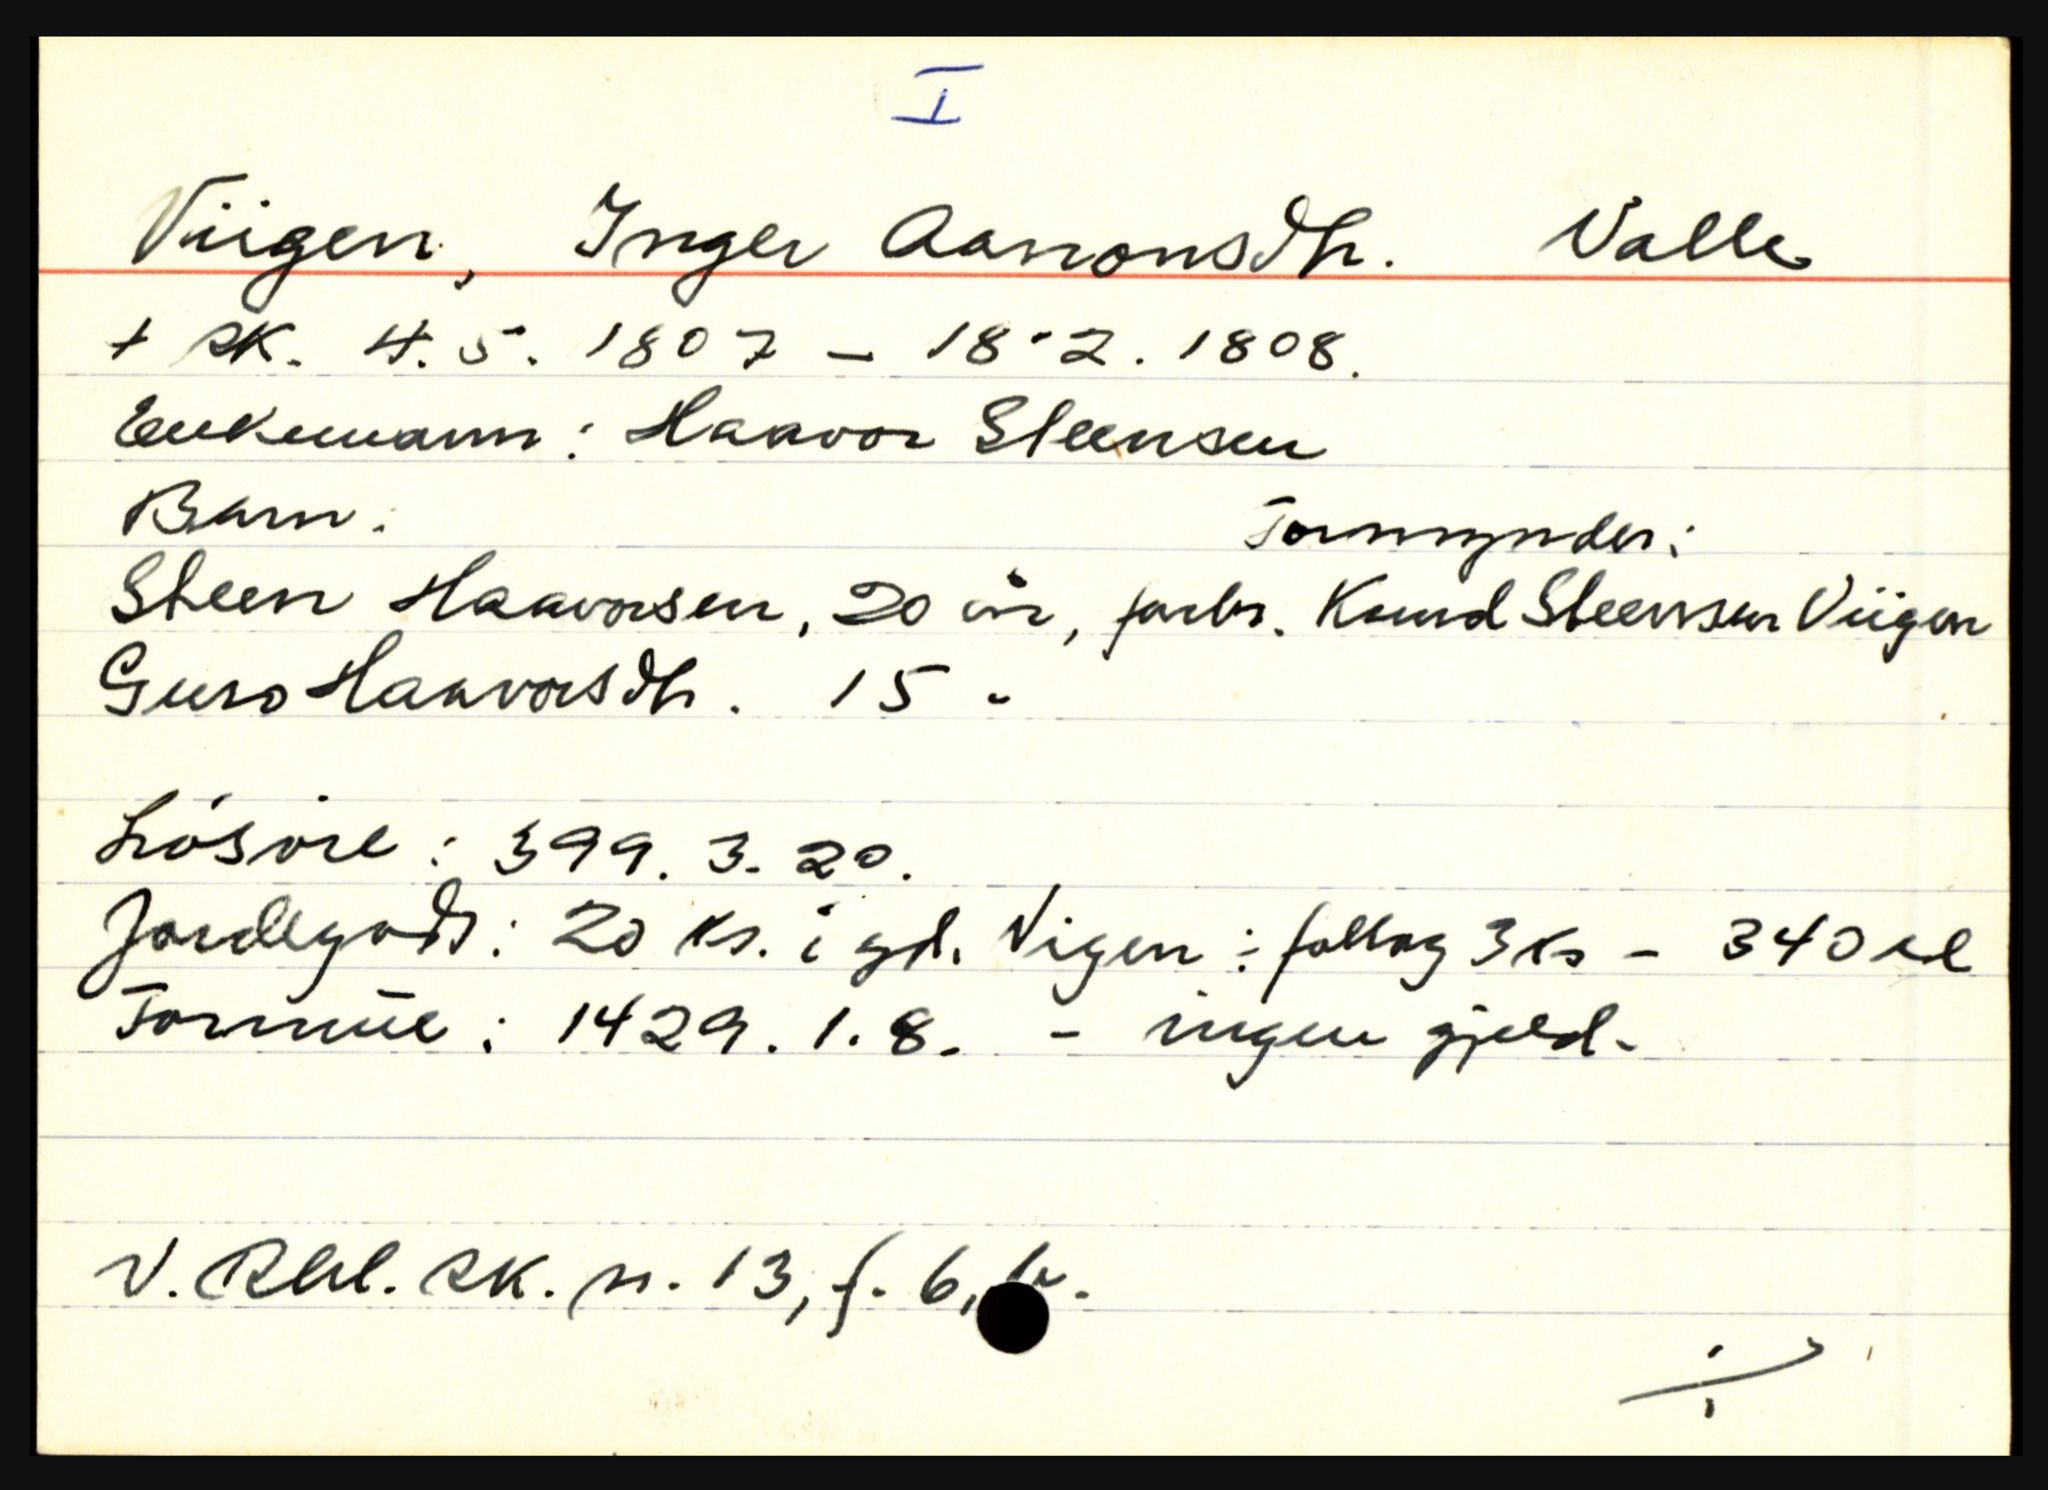 I
Viigen, Inger Aanonsdtr. Valle
+ sk. 4.5. 1807 - 18.2. 1808.
Enkemann: Haavor Steensen
Barn: Formynder:
Steen Haavorsen, 20 år, farbr. Knud Steensen Viigen
Guro Haavorsdtr. 15 "
Lösöre: 399. 3. 20.
Jordegods: 20 ks. i gd. Vigen: follog 3 ks - 340 rd
Formue: 1429. 1. 8. - ingen gjeld.
V. Rbl. sk. n. 13, f. 6, b.